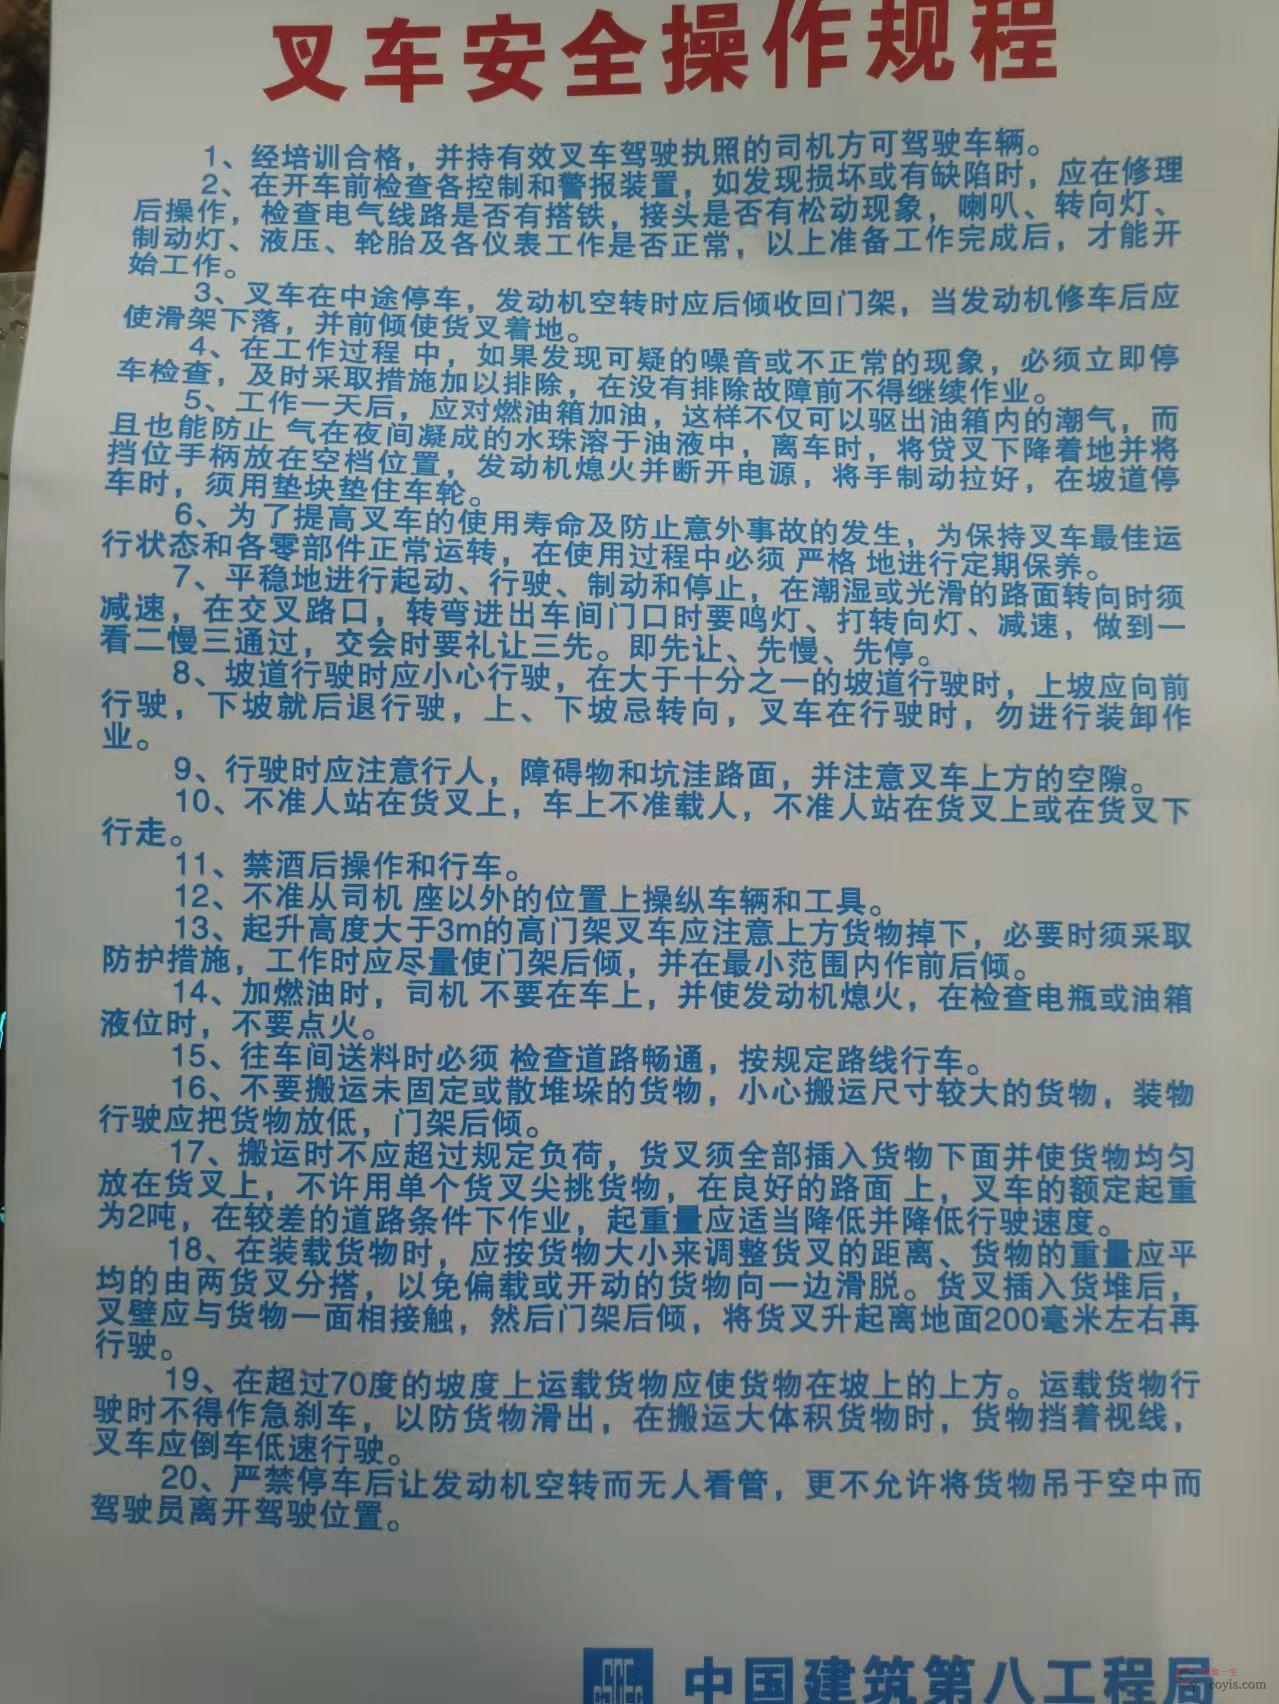 叉车安全操作规程
1、经培训合格，并持有效叉车驾驶执照的司机方可驾驶车辆。
2、在开车前检查各控制和警报装置，如发现损坏或有缺陷时，应在修理
后操作，检查电气线路是否有搭铁，接头是否有松动现象，喇叭、转向灯、
制动灯、液压、轮胎及各仪表工作是否正常，以上准备工作完成后，才能开
始工作。
3、叉车在中途停车，发动机空转时应后倾收回门架，当发动机修车后应
使滑架下落，并前倾使货叉着地。
4、在工作过程 中，如果发现可疑的噪音或不正常的现象，必须立即停
车检查，及时采取措施加以排除，在没有排除故障前不得继续作业。
5、工作一天后，应对燃油箱加油，这样不仅可以驱出油箱内的潮气，而
且也能防止 气在夜间凝成的水珠溶于油液中，离车时，将贷叉下降着地并将
挡位手柄放在空档位置，发动机熄火并断开电源，将手制动拉好，在坡道停
车时，须用垫块垫住车轮。
6、为了提高叉车的使用寿命及防止意外事故的发生，为保持叉车最佳运
行状态和各零部件正常运转，在使用过程中必须 严格 地进行定期保养。
7、平稳地进行起动、行驶、制动和停止，在潮湿或光滑的路面转向时须
减速，在交叉路口，转弯进出车间门口时要鸣灯、打转向灯、减速，做到一
看二慢三通过，交会时要礼让三先。即先让、先慢、先停。
8、坡道行驶时应小心行驶，在大于十分之一的坡道行驶时，上坡应向前
行驶，下坡就后退行驶，上、下坡忌转向，叉车在行驶时，勿进行装卸作
业。
9、行驶时应注意行人，障碍物和坑洼路面，并注意叉车上方的空隙。
10、不准人站在货叉上，车上不准载人，不准人站在货叉上或在货叉下
行走。
11、禁酒后操作和行车。
12、不准从司机 座以外的位置上操纵车辆和工具。
13、起升高度大于3m的高门架叉车应注意上方货物掉下，必要时须采取
防护措施，工作时应尽量使门架后倾，并在最小范围内作前后倾。
14、加燃油时，司机 不要在车上，并使发动机熄火，在检查电瓶或油箱
液位时，不要点火。
15、往车间送料时必须 检查道路畅通，按规定路线行车。
16、不要搬运未固定或散堆垛的货物，小心搬运尺寸较大的货物，装物
行驶应把货物放低，门架后倾。
17、搬运时不应超过规定负荷，货叉须全部插入货物下面并使货物均匀
放在货叉上，不许用单个货叉尖挑货物，在良好的路面 上，叉车的额定起重
为2吨，在较差的道路条件下作业，起重量应适当降低并降低行驶速度。
18、在装载货物时，应按货物大小来调整货叉的距离、货物的重量应平
均的由两货叉分搭，以免偏载或开动的货物向一边滑脱。货叉插入货堆后，
叉壁应与货物一面相接触，然后门架后倾，将货叉升起离地面200毫米左右再
行驶。
19、在超过70度的坡度上运载货物应使货物在坡上的上方。运载货物行
驶时不得作急刹车，以防货物滑出，在搬运大体积货物时，货物挡着视线，
叉车应倒车低速行驶。
20、严禁停车后让发动机空转而无人看管，更不允许将货物吊于空中而
驾驶员离开驾驶位置。
CSCEC 中国建筑第八工程局
coyis.com